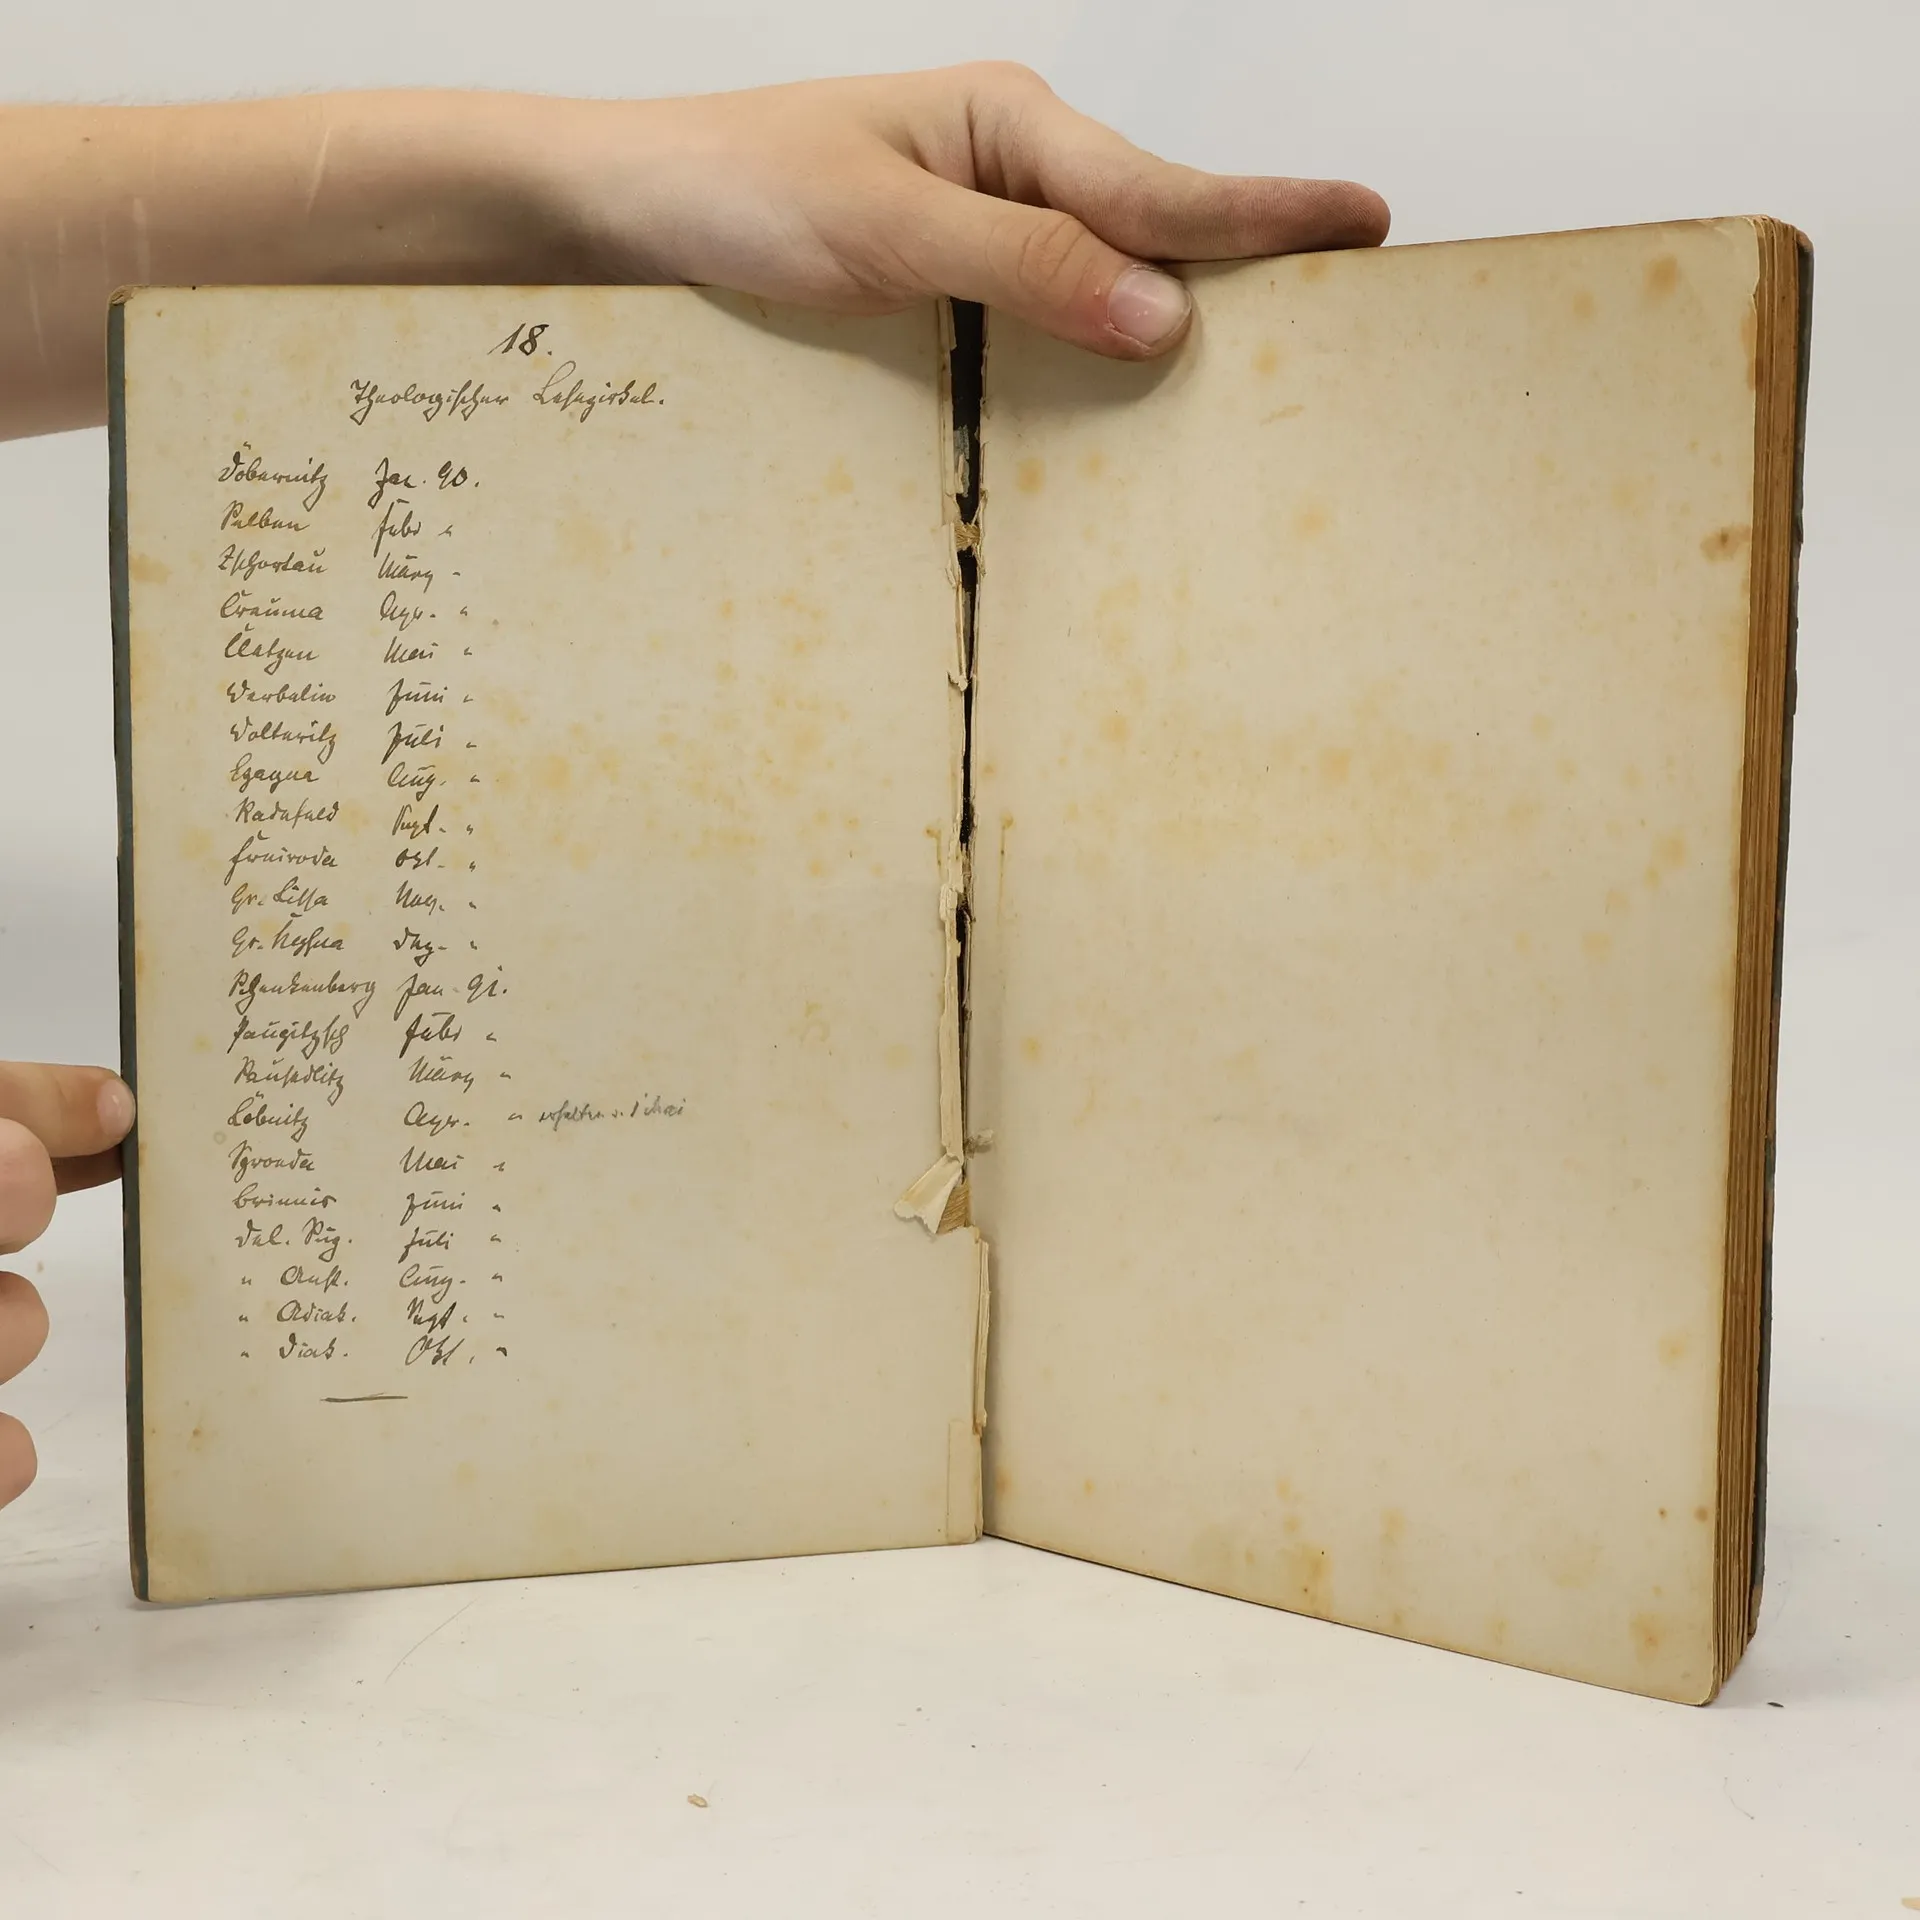 18.
Theologischer Lesezirkel.
Döbernitz Jan. 90.
Selben Febr "
Zschortau März "
Creuma Apr. "
Cletzen Mai "
Werbelin Juni "
Wolteritz Juli "
Hayna Aug. "
Radefeld Sept. "
Freiroda Okt. "
Gr. Lissa Nov. "
Gr. Kyhna Dez. "
Schenkenberg Jan 91.
Paupitzsch Febr "
Sausedlitz März "
Löbnitz Apr. " erhalten d. 1 Mai
Spröda Mai "
Brinnis Juni "
Del. Sup. Juli "
" Anst. Aug. "
" Adiak. Sept. "
" Diak. Okt. "